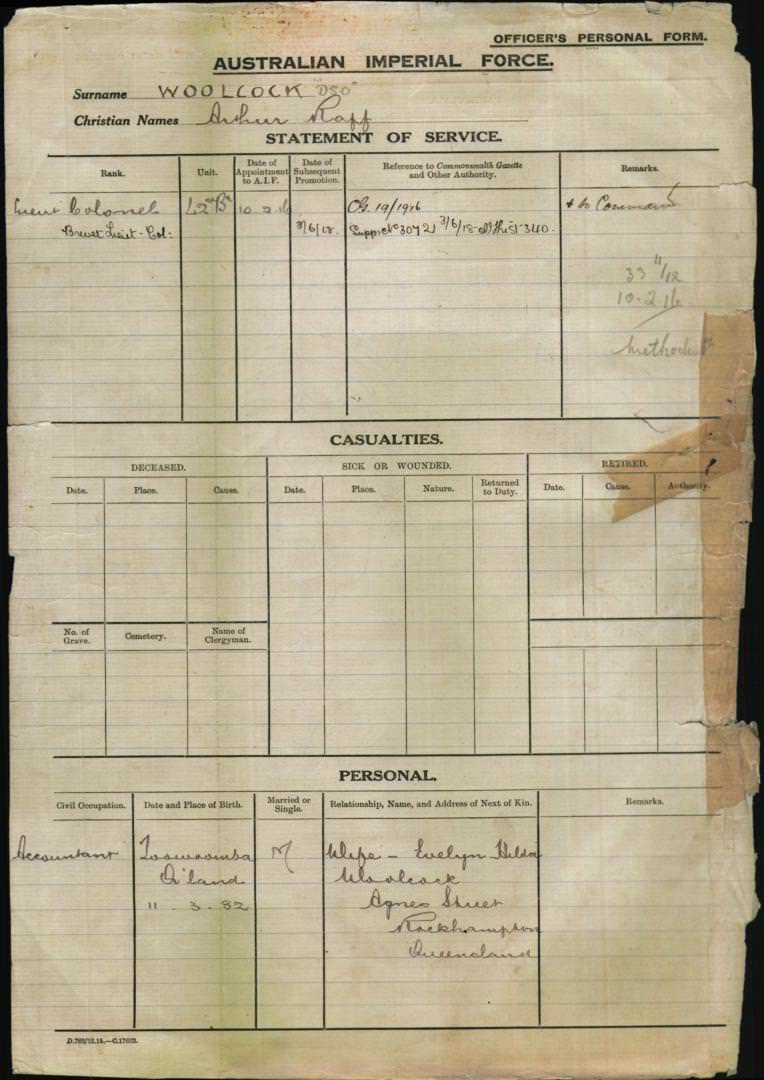 OFFICER'S PERSONAL FORM.
AUSTRALIAN IMPERIAL FORCE.
Surname WOOLCOCK "DSO"
Christian Names Arthur Raff
STATEMENT OF SERVICE.
Rank. Unit. Date of Appointment to A.I.F. Date of Subsequent Promotion. Reference to Commonwealth Gazette and Other Authority. Remarks.
Lieut Colonel 42nd Bn 10.2.16 CG. 19/1916 & to Command
Brevet Lieut-Col: 3/6/18. Supp No 30721 3/6/18 340.
33 11/12
10.2.16
Methodist
CASUALTIES.
DECEASED. SICK OR WOUNDED. RETIRED.
Date. Place. Cause. Date. Place. Nature. Returned to Duty. Date. Cause. Authority.
No. of Grave. Cemetery. Name of Clergyman.
PERSONAL.
Civil Occupation. Date and Place of Birth. Married or Single. Relationship, Name, and Address of Next of Kin. Remarks.
Accountant Toowoomba M Wife - Evelyn Hilda
Q'land Woolcock
11.3.82 Agnes Street
Rockhampton
Queensland